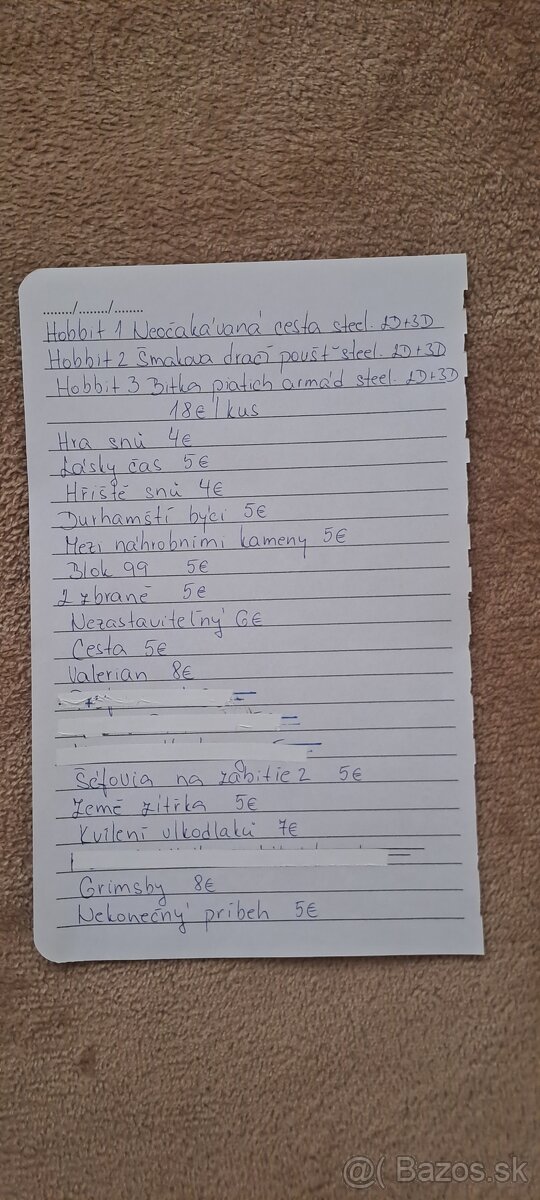 ......../......../........
Hobbit 1 Neočakávaná cesta steel. 2D+3D
Hobbit 2 Smakova dračí poušť steel. 2D+3D
Hobbit 3 Bitka piatich armád steel. 2D+3D
18€/kus
Hra snů 4€
Lásky čas 5€
Hřiště snů 4€
Durhamští býci 5€
Mezi náhrobními kameny 5€
Blok 99 5€
2 zbraně 5€
Nezastaviteľný 6€
Cesta 5€
Valerian 8€
Šéfovia na zabitie 2 5€
Země zítřka 5€
Kvílení vlkodlaků 7€
Grimsby 8€
Nekonečný príbeh 5€
@( Bazos.sk